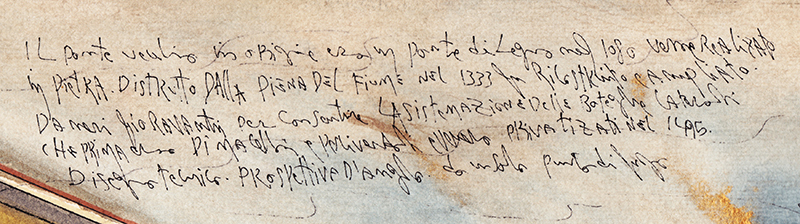 IL ponte vecchio in origine era un ponte di Legno nel 1080 venne REALIZZATO
in PIETRA. DISTRUTTO DALLA PIENA DEL FIUME NEL 1333 fu RICOSTRUITO e AMPLIATO
DA neri fioRAVANTI per consentire LA SISTEMAZIONE Delle Botteghe
CHE PRIMA di MACELLAI e PRIVATIZZATI NEL 1495.
Disegno tecnico. PROSPETTIVA D'angolo. punto di fuga